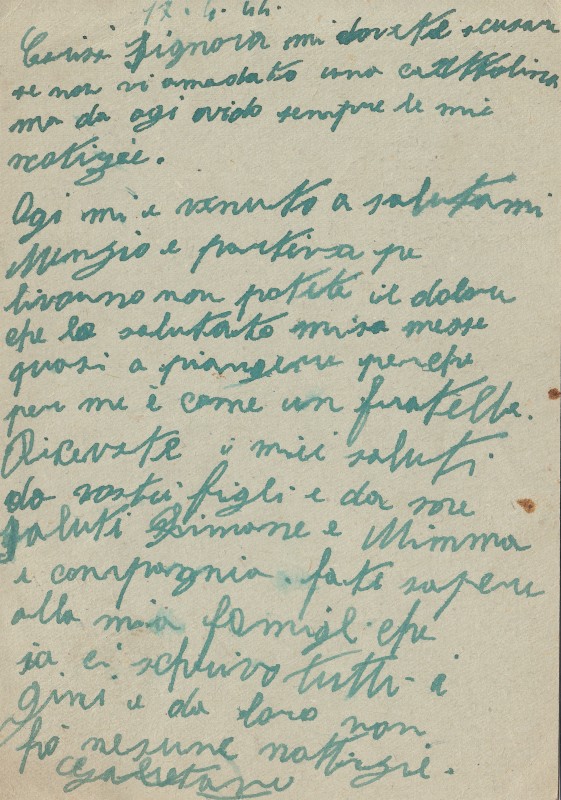 17. 4. 44.
Signora mi dovete scusare
se non vi amadato una cattolina
ma da ogi ovido sempre le mie
notizie.
Ogi mi e venuto a salutami
Nunzio e partiva pe
livorno non potete il dolore
che lo salutato misa messe
quasi a piangere perche
per me è come un fratello.
Ricevete i miei saluti
da vostri figli e da
saluti Simone e Mimma
e compagnia. fate sapere
alla mia famigl. che
io ci schrivo tutti i
gini e da loro non
ho nesune nottizie.
Gaetano